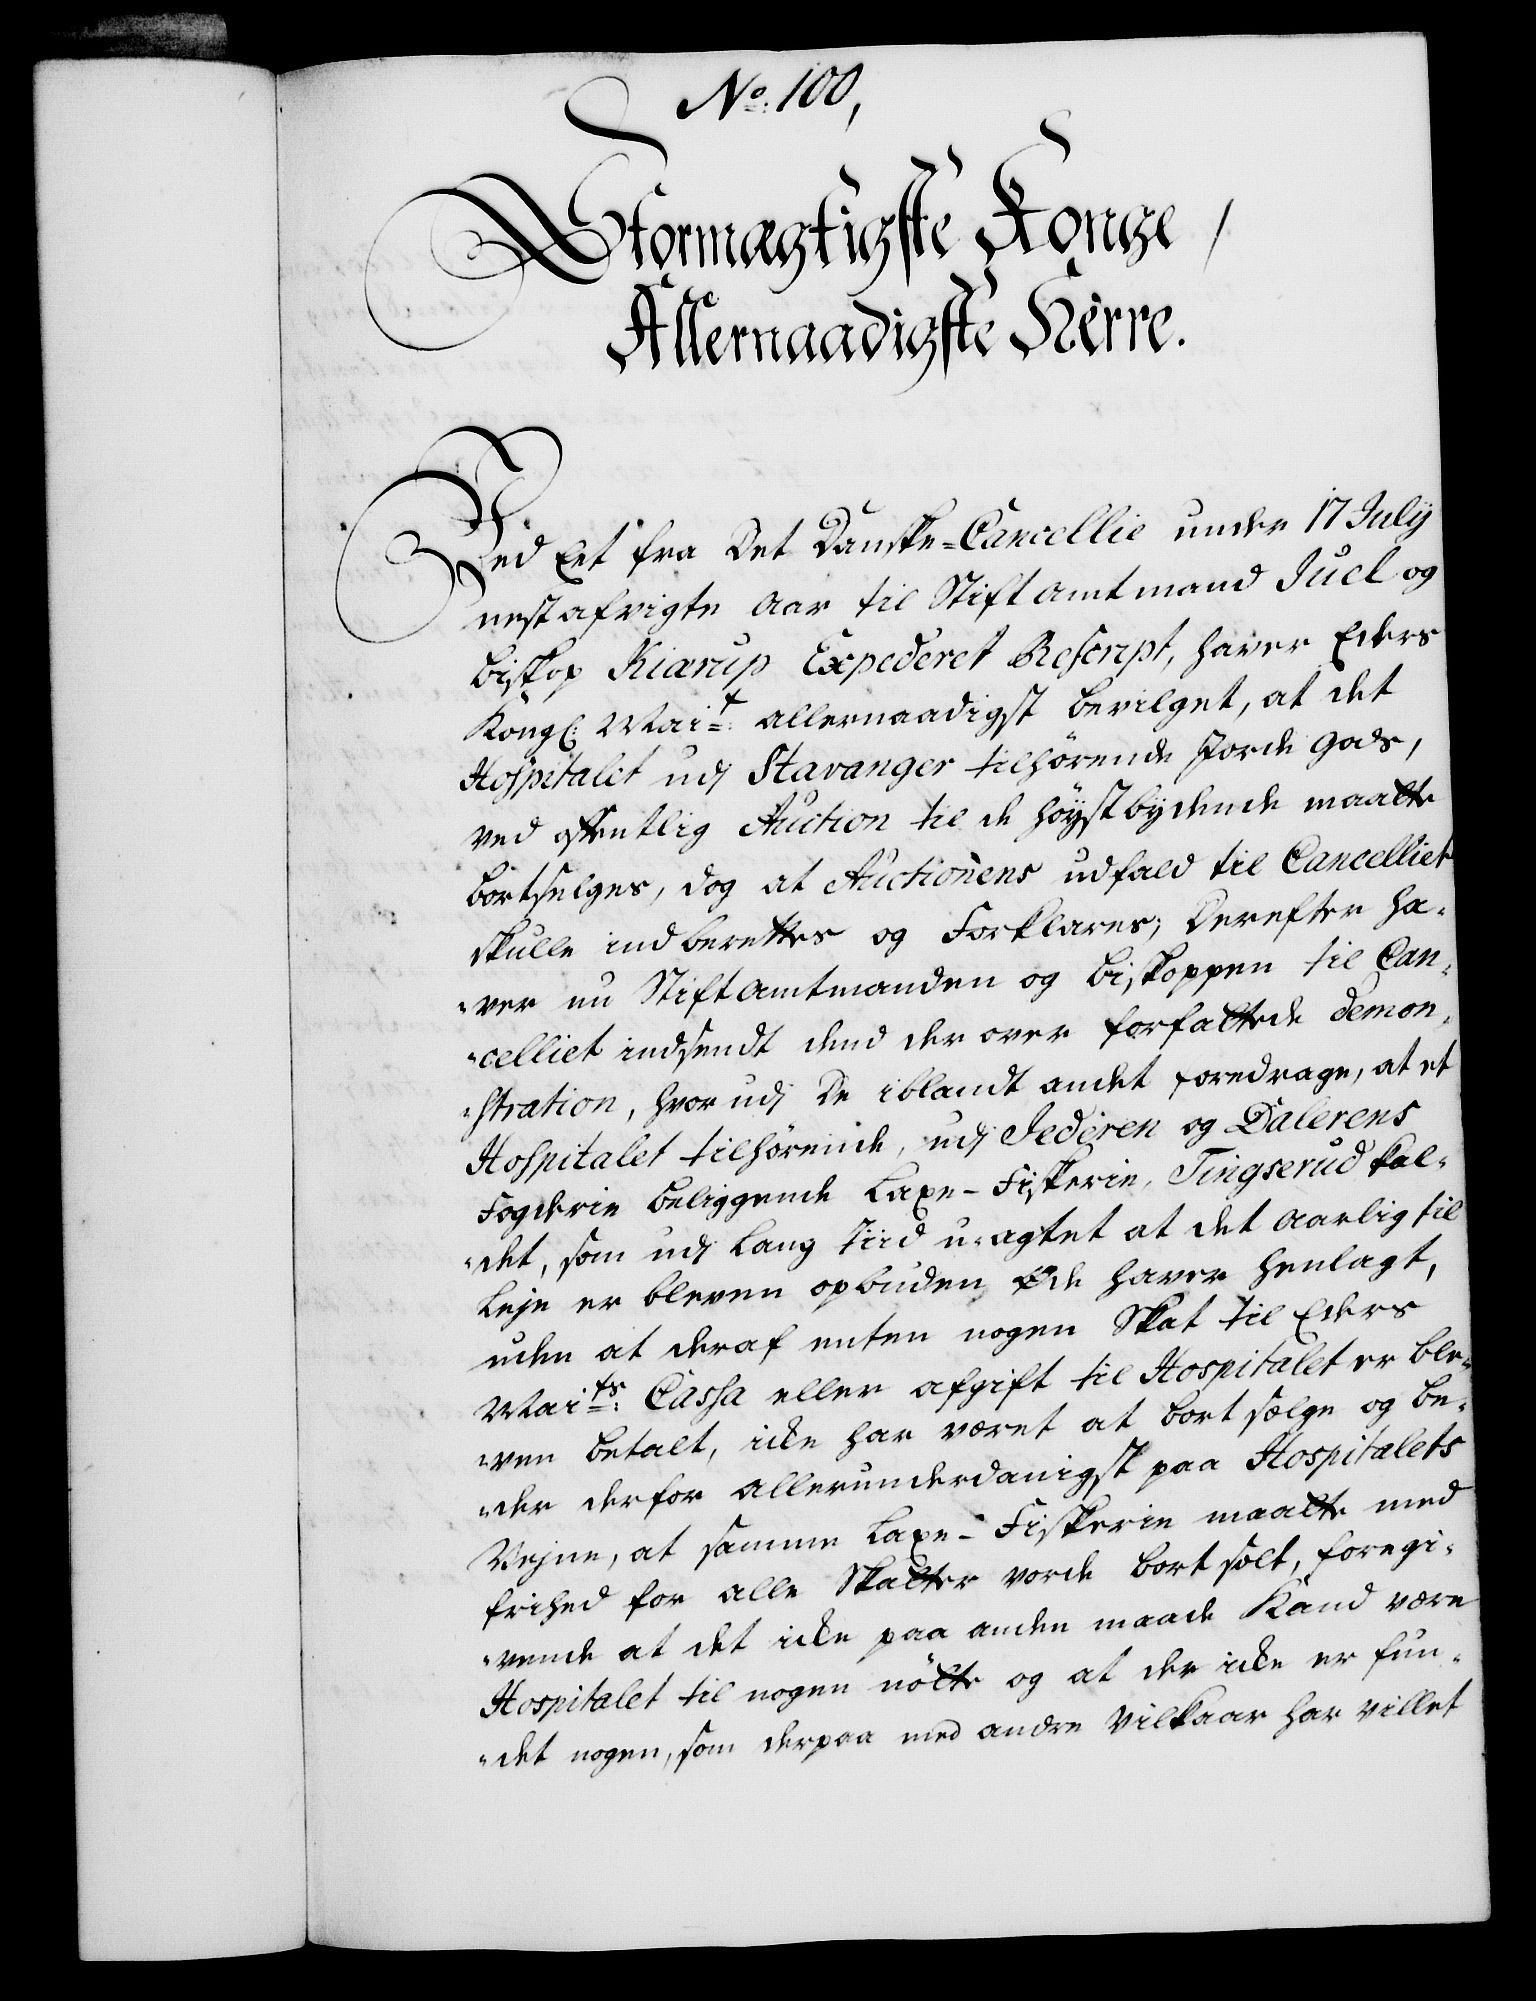 No: 100,
Stormægtigste Konge /
Allernaadigste Herre.
Ved Eet fra Det Danske=Cancellie under 17 July
nest afvigte Aar til Stift Amtmand Juel og
Biskop Kiærup Expederet Rescript, haver Eders
Kongl: Mait: allernaadigst bevilget, at det
Hospitalet udj Stavanger tilhörende Jorde Gods,
ved offentlig Auction til de höystbydende maatte
bortselges, dog at Auctionens udfald til Cancelliet
skulle indberettes og Forklares; Derefter ha-
-ver nu Stiftamtmanden og Biskoppen til Can-
-celliet indsendt dend der over forfattede Demon-
-stration, hvor udj De iblandt andet foredrage, at et
Hospitalet tilhörende, udj Jederen og Dalerens
Fogderie beliggende Laxe-Fiskerie, Tingserud kal-
-det, som udj lang Tiid u-agtet at det Aarlig til
Leje er bleven opbuden, Øde haver henlagt,
uden at deraf enten nogen Skat til Eders
Maits: Cassa eller afgift til Hospitalet er ble-
-ven betalt, icke har været at bort sælge og be-
-der derfor allerunderdanigst paa Hospitalets
Vejne, at samme Laxe-Fiskerie maatte med
frihed for alle Skatter vorde bort solt, foregi-
-vende at det icke paa anden maade Kand være
Hospitalet til nogen nötte og at der icke er fun-
-det nogen, som derpaa med andre Vilkaar har villet